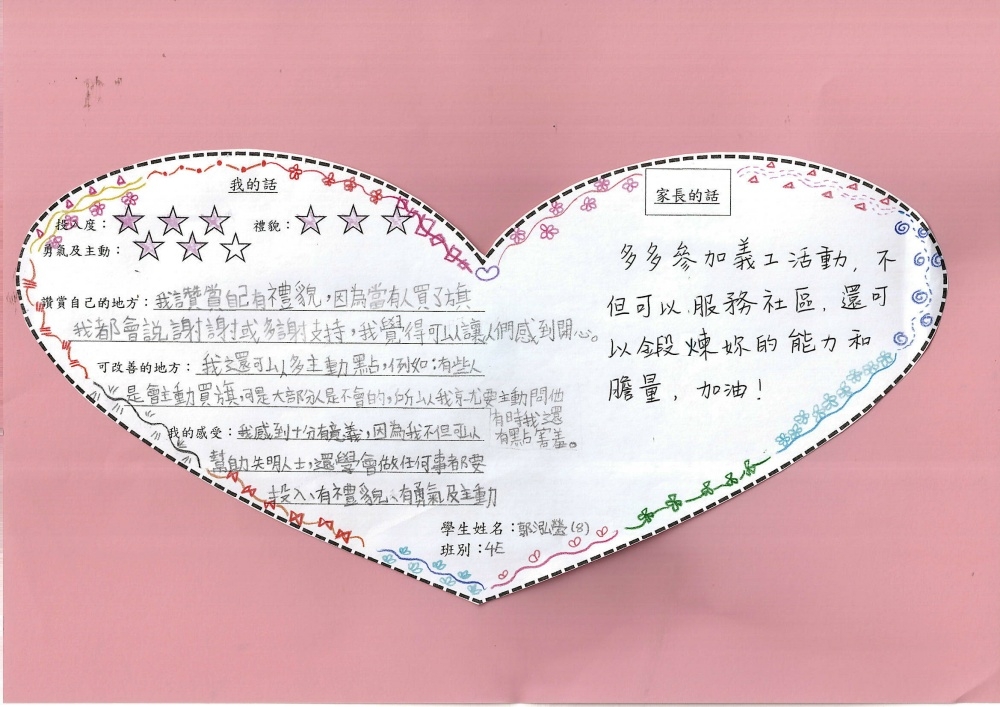 我的話
投入度：☆☆☆ 禮貌：☆☆☆
勇氣及主動：☆☆☆
讚賞自己的地方：我讚賞自己有禮貌，因為當有人買了旗
我都會說謝謝或多謝支持，我覺得可以讓人們感到開心。
可改善的地方：我還可以多主動點，例如：有些人
是會主動買旗，可是大部分人是不會的，所以我就要主動問他
有時我還
有點害羞。
我的感受：我感到十分有意義，因為我不但可以
幫助失明人士，還學會做任何事都要
投入、有禮貌、有勇氣及主動
學生姓名：郭泓瑩(8)
班別：4E
家長的話
多多參加義工活動，不
但可以服務社區，還可
以鍛煉妳的能力和
膽量，加油！